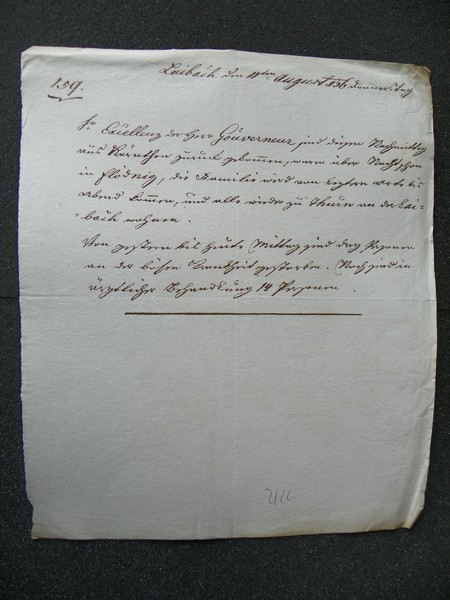 Laibach den 11ten August 836 Donnerstag
159.
Sr Excellenz der Herr Gouverneur sind diesen Nachmittag
aus Kärnthen zurück gekommen, waren über Nacht schon
in Flödnig, die Familie wird von letztern Orte bis
Abend kommen, und alle wieder zu Thurn an der Lai-
bach wohnen.
Von gestern bis heute Mittag sind drey Personen
an der bösen Krankheit gestorben. Noch sind in
ärztlicher Behandlung 14 Personen.